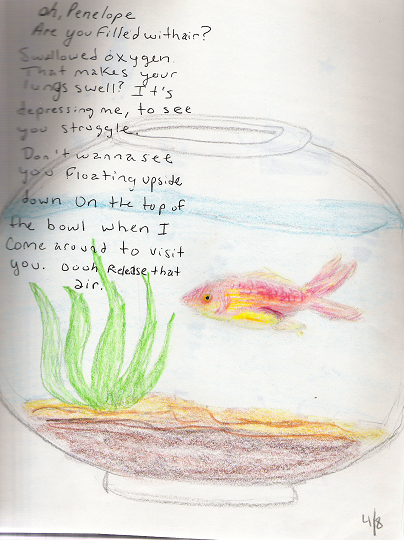 oh, Penelope
Are you filled with air?
Swallowed oxygen.
That makes your
lungs swell? It's
depressing me, to see
you struggle.
Don't wanna see
you Floating upside
down On the top of
the bowl when I
Come around to visit
you. Oooh Release that
air.
4/8